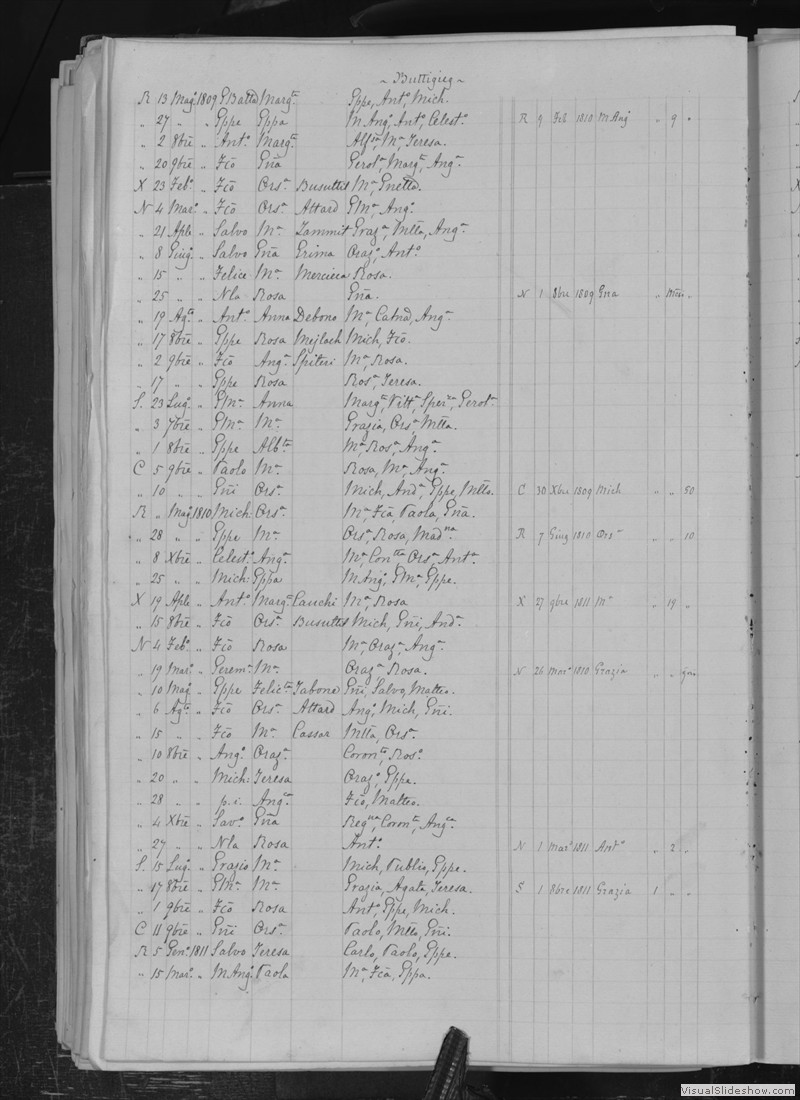 ~ Buttigieg ~
R 13 Mag. 1809 GBatta Margta Gppe, Anto, Mich.
„ 27 „ „ Gppe Gppa MAngo, Anto, Celesto R 9 Feb 1810 MAngo „ 9 „
„ 2 8bre „ Anto Margta Alfsa, Ma, Teresa.
„ 20 9bre „ Fco Gña Gerota, Margta, Anga
X 23 Febo „ Fco Orsa Busuttil Ma, Gnetta.
N 4 Maro „ Fco Orsa Attard GMa, Ango
„ 21 Aple „ Salvo Ma Zammit Graza, Mtta, Anga
„ 8 Giugo „ Salvo Gña Grima Orazo, Anto
„ 15 „ „ Felice Ma Mercieca Rosa.
„ 25 „ „ Nla Rosa Gña. N 1 8bre 1809 Gna
„ 19 Agto „ Anto Anna Debono Ma, Catna, Anga
„ 17 8bre „ Gppe Rosa Mejlach Mich, Fco.
„ 2 9bre „ Fco Anga Spiteri Ma, Rosa.
„ 17 „ „ Gppe Rosa Rosa, Teresa.
S. 23 Lugo „ GMa Anna Marga, Vitta, Speraa, Gerota
„ 3 7bre „ GMa Ma Grazia, Orsa, Mtta.
„ 1 8bre „ Gppe Albta Ma, Rosa, Anga
C 5 9bre „ Paolo Ma Rosa, Ma, Anga
„ 10 „ „ Gñi Orsa Mich, Anda, Gppe, Mtto. C 30 Xbre 1809 Mich „ „ 50
R „ Mago 1810 Mich. Orsa Ma, Fca, Paola, Gña.
„ 28 „ „ Gppe Ma Orsa, Rosa, Madna R 7 Giug 1810 Orsa „ „ 10
„ 8 Xbre „ Celesto Anga Ma, Contta, Orsa, Anta
„ 25 „ „ Mich: Gppa MAngo, GMa, Gppe.
X 19 Aple „ Anto Marga Cauchi Ma, Rosa X 27 9bre 1811 Ma „ 19 „
„ 15 8bre „ Fco Orsa Busuttil Mich, Gñi, Anda
N 4 Febo „ Fco Rosa Ma, Oraza, Anga
„ 19 Maro „ Gerema Ma Oraza, Rosa. N 26 Maro 1810 Grazia
„ 10 Mag „ Gppe Felicta Tabone Gñi, Salvo, Matteo.
„ 6 Agto „ Fco Orsa Attard Ango, Mich, Gñi.
„ 15 „ „ Fco Ma Cassar Mtta, Orsa
„ 10 8bre „ Ango Oraza Coronta, Roso
„ 20 „ „ Mich: Teresa Orazo, Gppe.
„ 28 „ „ p.i. Angca Fco, Matteo.
„ 4 Xbre „ Savo Gña Regna, Coronta, Angca
„ 27 „ „ Nla Rosa Anto N 1 Maro 1811 Anto „ 2 „
S. 15 Lugo „ Grazio Ma Mich, Publio, Gppe.
„ 17 8bre „ GMa Ma Grazia, Agata, Teresa. S 1 8bre 1811 Grazia 1 „ „
„ 1 9bre „ Fco Rosa Anto, Gppe, Mich.
C 11 9bre „ Gñi Orsa Paolo, Mtto, Gñi.
R 5 Geno 1811 Salvo Teresa Carlo, Paolo, Gppe.
„ 15 Maro „ MAngo Paola Ma, Fca, Gppa.
VisualSlideshow.com